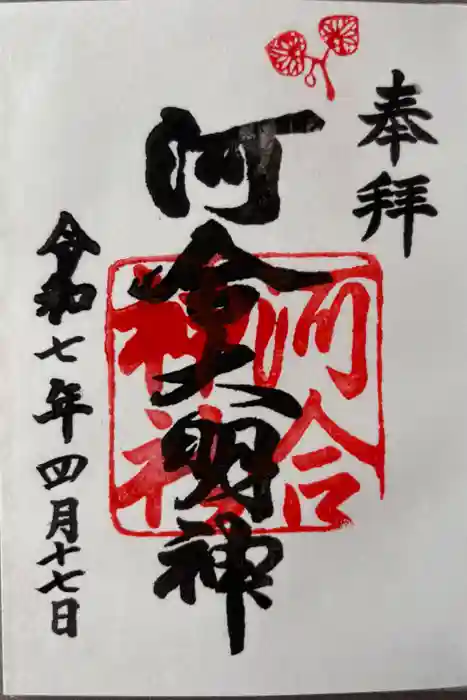 奉拝
河會大明神
河合
神社
令和七年四月十七日